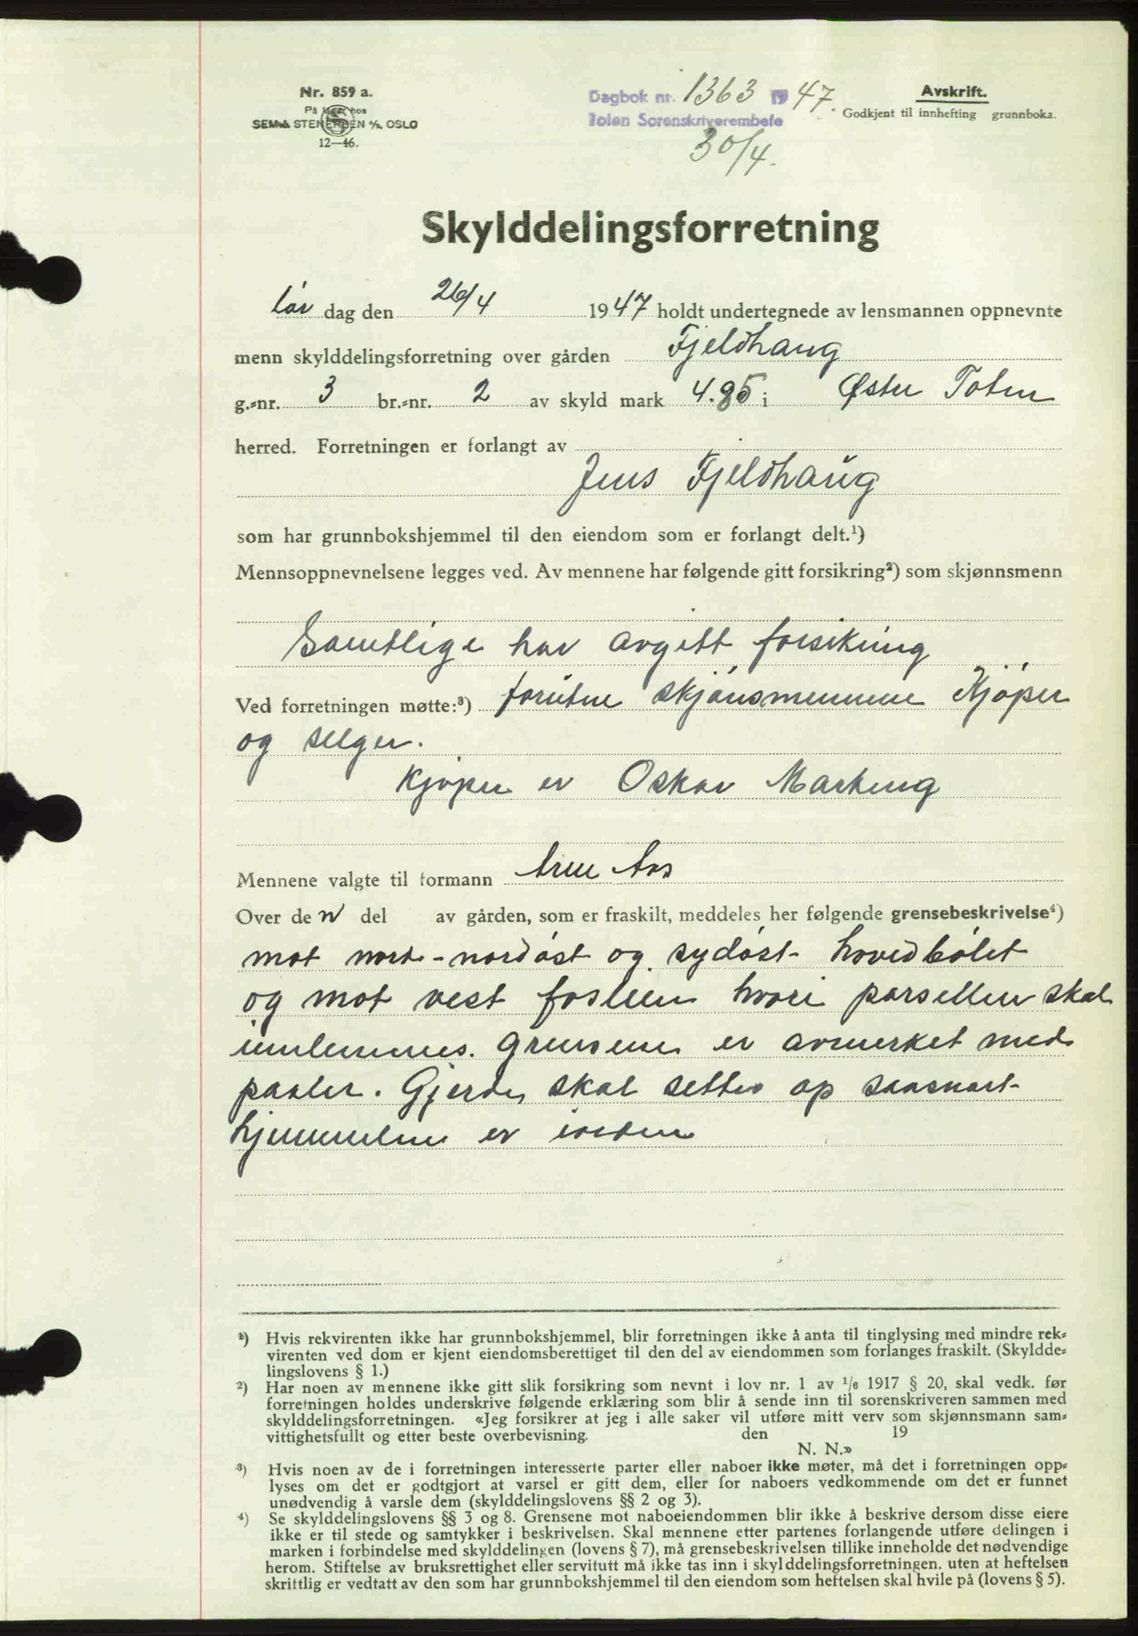 Nr. 859 a.
På lager hos
SEM & STENERSEN A/S, OSLO
12—46.
Dagbok nr. 1363 1947.
Toten Sorenskriverembete
30/4.
Avskrift.
Godkjent til innhefting grunnboka.
Skylddelingsforretning
lør dag den 26/4 1947 holdt undertegnede av lensmannen oppnevnte
menn skylddelingsforretning over gården Fjeldhaug
g.=nr. 3 br.=nr. 2 av skyld mark 4.85 i Øster Toten
herred. Forretningen er forlangt av
Jens Fjeldhaug
som har grunnbokshjemmel til den eiendom som er forlangt delt.¹)
Mennsoppnevnelsene legges ved. Av mennene har følgende gitt forsikring²) som skjønnsmenn
Samtlige har avgitt forsikring
Ved forretningen møtte:³) foruten skjønsmennene Kjøper
og selger.
Kjøper er Oskar
Mennene valgte til formann Arne Aas
Over den del av gården, som er fraskilt, meddeles her følgende grensebeskrivelse⁴)
mot nord-nordøst og sydøst hovedbølet
og mot vest hvori parsellen skal
innlemmes. Grensene er avmerket med
paaler. Gjerde skal settes op saasnart
hjemmelen er iorden
¹) Hvis rekvirenten ikke har grunnbokshjemmel, blir forretningen ikke å anta til tinglysing med mindre rek=
virenten ved dom er kjent eiendomsberettiget til den del av eiendommen som forlanges fraskilt. (Skyldde=
lingslovens § 1.)
²) Har noen av mennene ikke gitt slik forsikring som nevnt i lov nr. 1 av ¹/6 1917 § 20, skal vedk. før
forretningen holdes underskrive følgende erklæring som blir å sende inn til sorenskriveren sammen med
skylddelingsforretningen. «Jeg forsikrer at jeg i alle saker vil utføre mitt verv som skjønnsmann sam=
vittighetsfullt og etter beste overbevisning. den 19
N. N.»
³) Hvis noen av de i forretningen interesserte parter eller naboer ikke møter, må det i forretningen opp=
lyses om det er godtgjort at varsel er gitt dem, eller for naboers vedkommende om det er funnet
unødvendig å varsle dem (skylddelingslovens §§ 2 og 3).
⁴) Se skylddelingslovens §§ 3 og 8. Grensene mot naboeiendommen blir ikke å beskrive dersom disse eiere
ikke er til stede og samtykker i beskrivelsen. Skal mennene etter partenes forlangende utføre delingen i
marken i forbindelse med skylddelingen (lovens § 7), må grensebeskrivelsen tillike inneholde det nødvendige
herom. Stiftelse av bruksrettighet eller servitutt må ikke tas inn i skylddelingsforretningen, uten at heftelsen
skrittlig er vedtatt av den som har grunnbokshjemmel til den eiendom som heftelsen skal hvile på (lovens § 5).